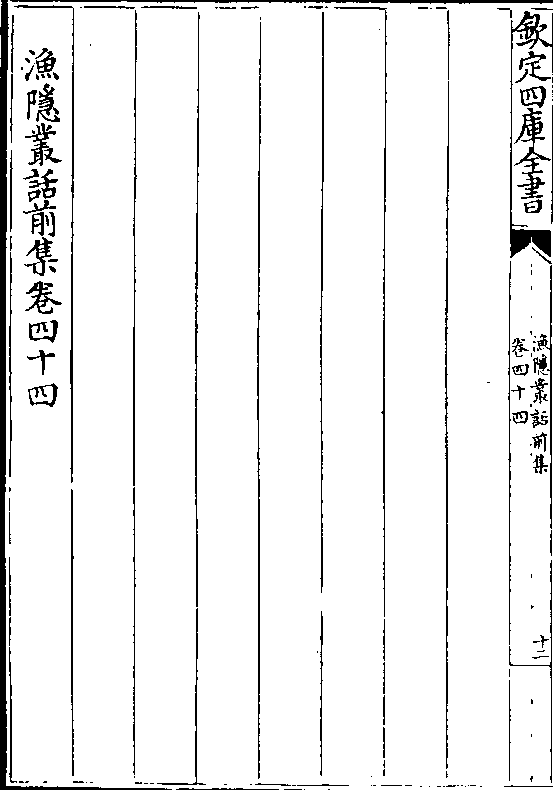 欽定四庫全書
漁隱叢話前集
卷四十四
十二
漁隱叢話前集卷四十四